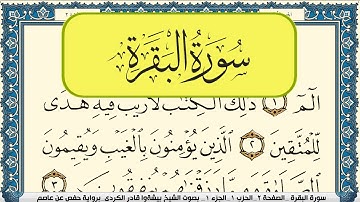 سُورَةُ البَقَرَةِ
الٓمٓ ١ ذَٰلِكَ الْكِتَٰبُ لَا رَيْبَ فِيهِ هُدًى
لِّلْمُتَّقِينَ ٢ الَّذِينَ يُؤْمِنُونَ بِالْغَيْبِ وَيُقِيمُونَ
الصَّلَوٰةَ وَمِمَّا رَزَقْنَٰهُمْ يُنفِقُونَ ٣
سورة البقرة . الصفحة ٢ . الحزب ١ . الجزء ١ . بصوت الشيخ بيشةوا قادر الكردي . برواية حفص عن عاصم